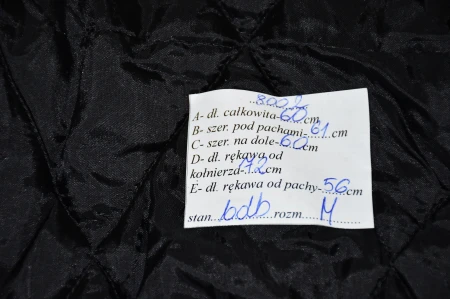 A- dł. całkowita-60cm
B- szer. pod pachami-61cm
C- szer. na dole-60cm
D- dł. rękawa od
kołnierza-72cm
E- dł. rękawa od pachy-56cm
stan bdb rozm M